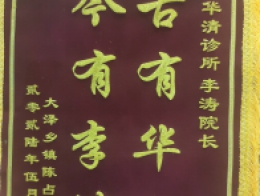 华清诊所 李涛院长
古有华
今有李
大泽乡镇陈占
贰零贰陆年伍月